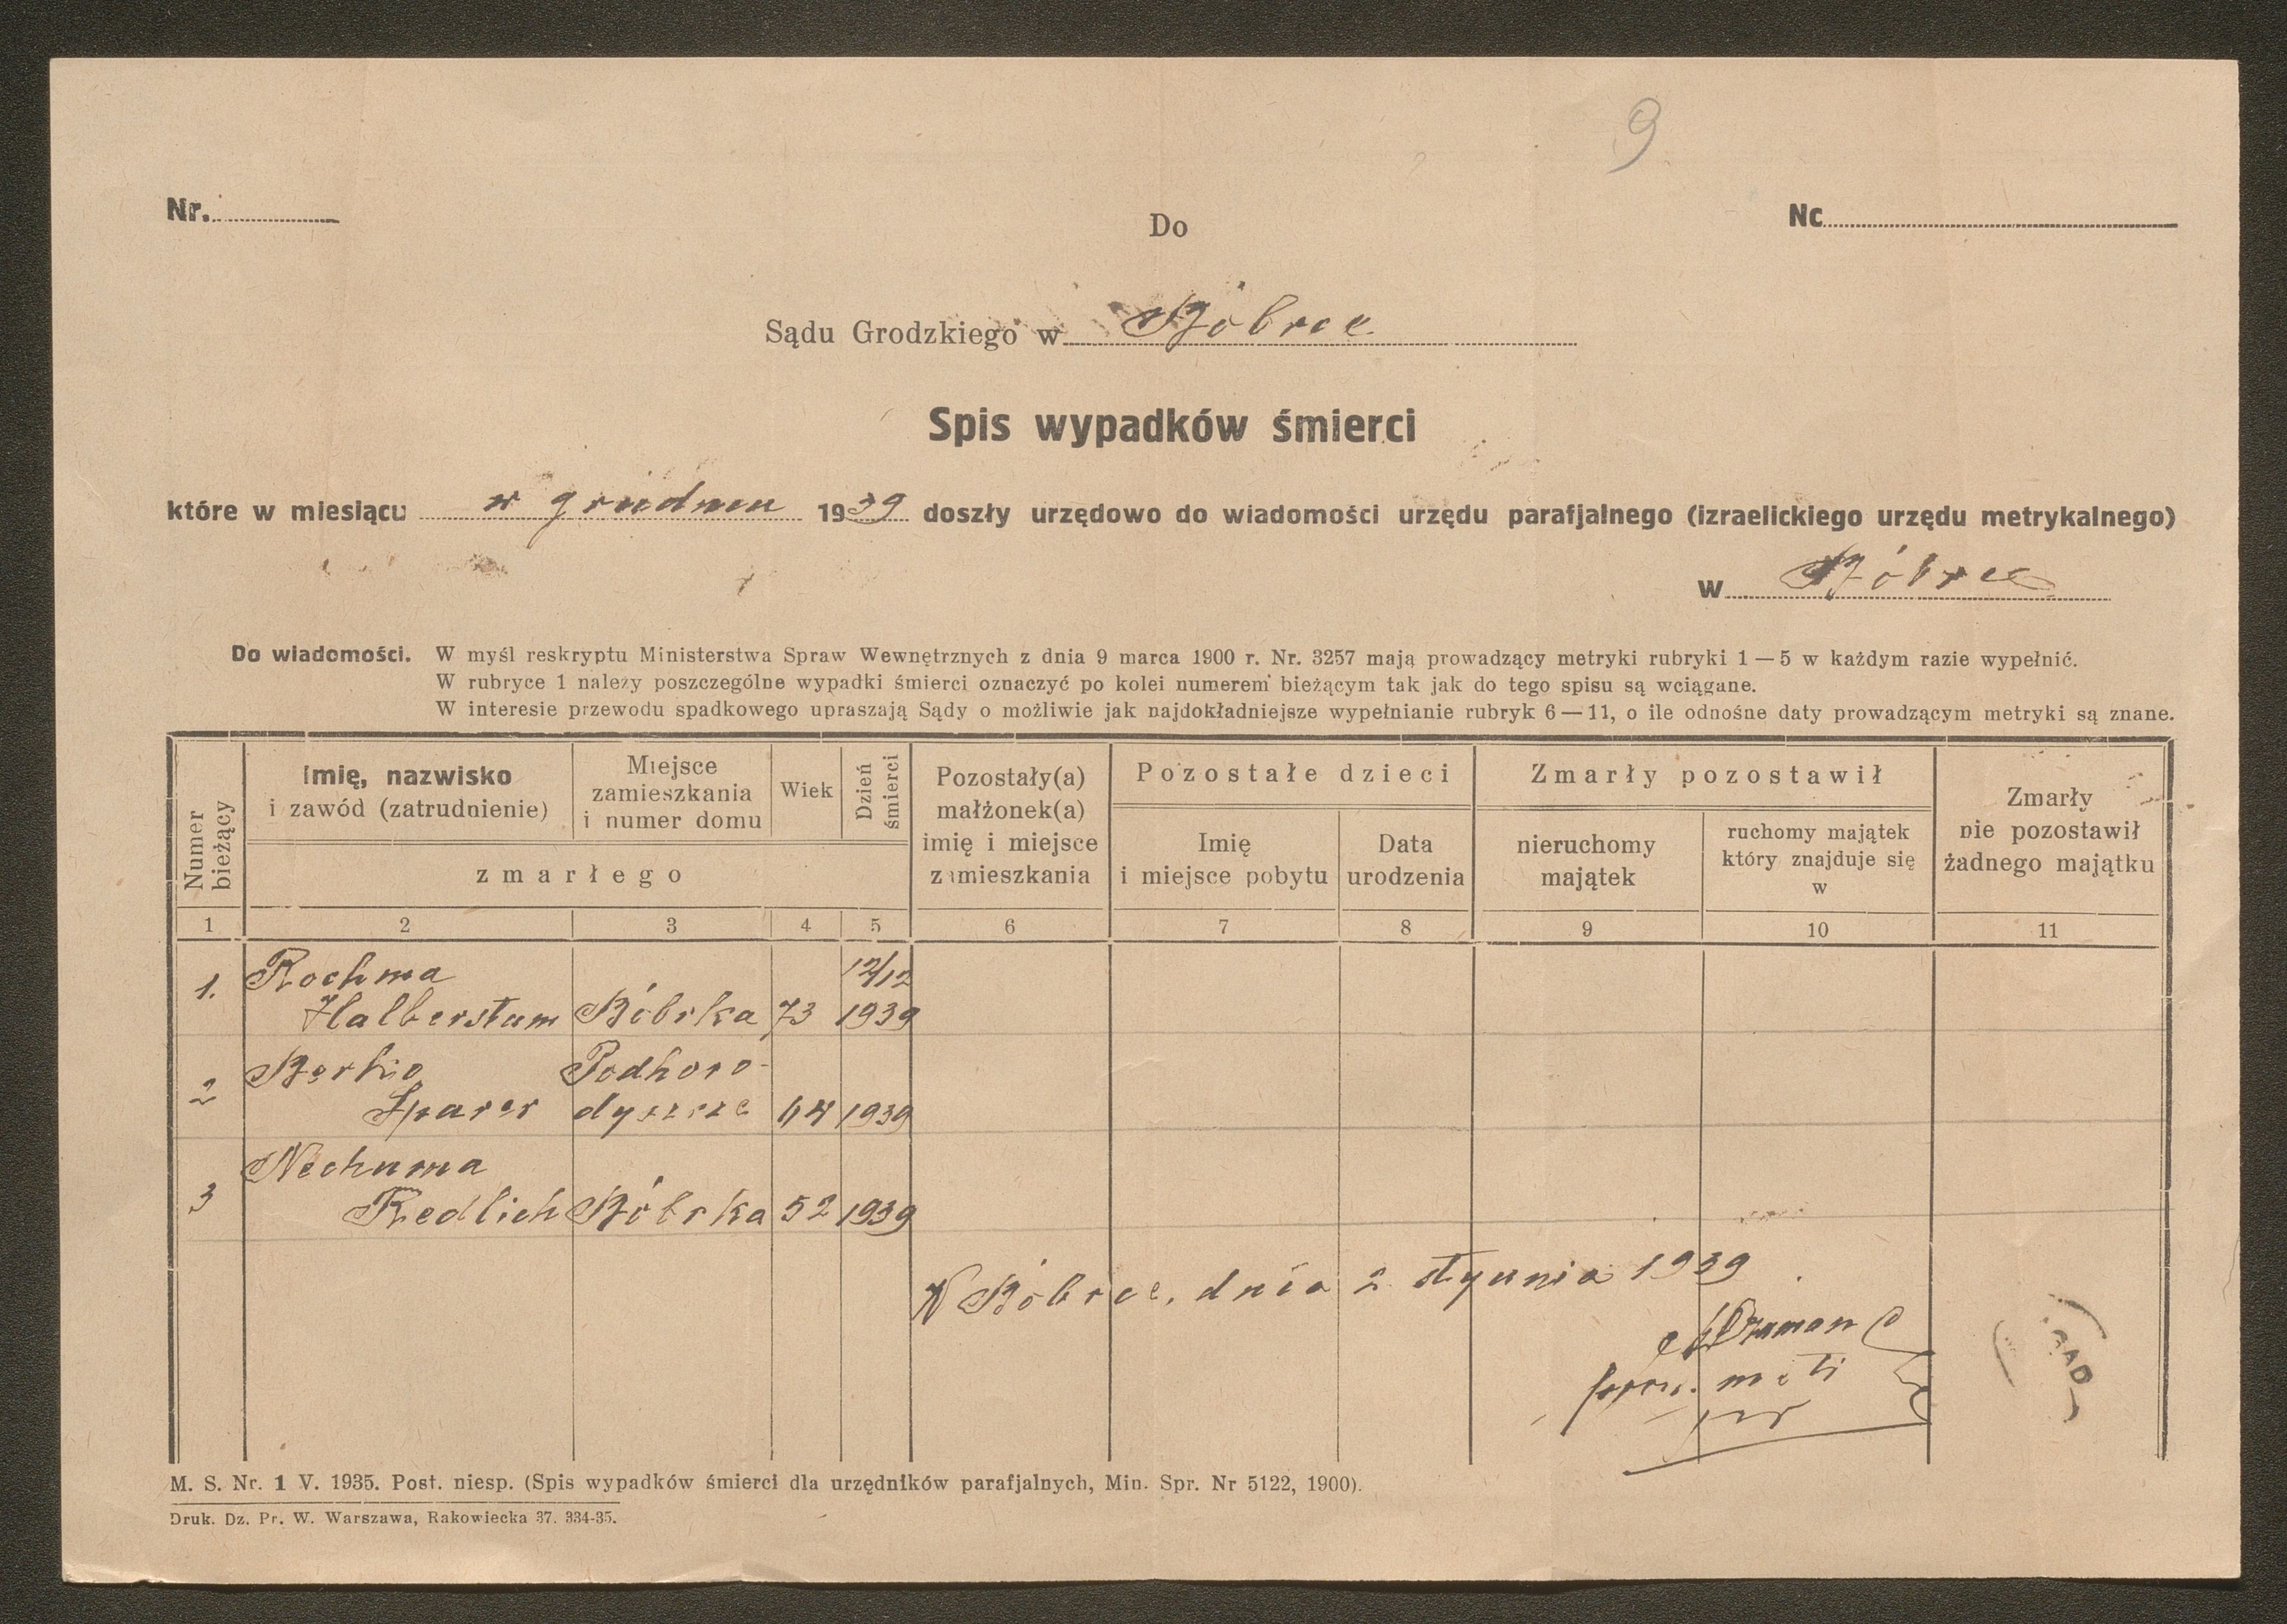 9
Nr.
Do
Nc
Sądu Grodzkiego w Bóbrce
Spis wypadków śmierci
które w miesiącu w grudniu 1939 doszły urzędowo do wiadomości urzędu parafjalnego (izraelickiego urzędu metrykalnego)
w Bóbrce
Do wiadomości. W myśl reskryptu Ministerstwa Spraw Wewnętrznych z dnia 9 marca 1900 r. Nr. 3257 mają prowadzący metryki rubryki 1—5 w każdym razie wypełnić.
W rubryce 1 należy poszczególne wypadki śmierci oznaczyć po kolei numerem bieżącym tak jak do tego spisu są wciągane.
W interesie przewodu spadkowego upraszają Sądy o możliwie jak najdokładniejsze wypełnianie rubryk 6—11, o ile odnośne daty prowadzącym metryki są znane.
Numer bieżący
Imię, nazwisko
i zawód (zatrudnienie)
Miejsce
zamieszkania
i numer domu
Wiek
Dzień śmierci
zmarłego
Pozostały(a)
małżonek(a)
imię i miejsce
zamieszkania
Pozostałe dzieci
Imię
i miejsce pobytu
Data
urodzenia
Zmarły pozostawił
nieruchomy
majątek
ruchomy majątek
który znajduje się
w
Zmarły
nie pozostawił
żadnego majątku
1 2 3 4 5 6 7 8 9 10 11
Rochma 12/12
1. Halberstam Bóbrka 73 1939
Berko Podhoro-
2 Sparer dyszcze 64 1939
Nechuma
3 Redlich Bóbrka 52 1939
W Bóbrce, dnia 2 stycznia 1939
M. S. Nr. 1 V. 1935. Post. niesp. (Spis wypadków śmierci dla urzędników parafjalnych, Min. Spr. Nr 5122, 1900).
Druk. Dz. Pr. W. Warszawa, Rakowiecka 37. 334-35.